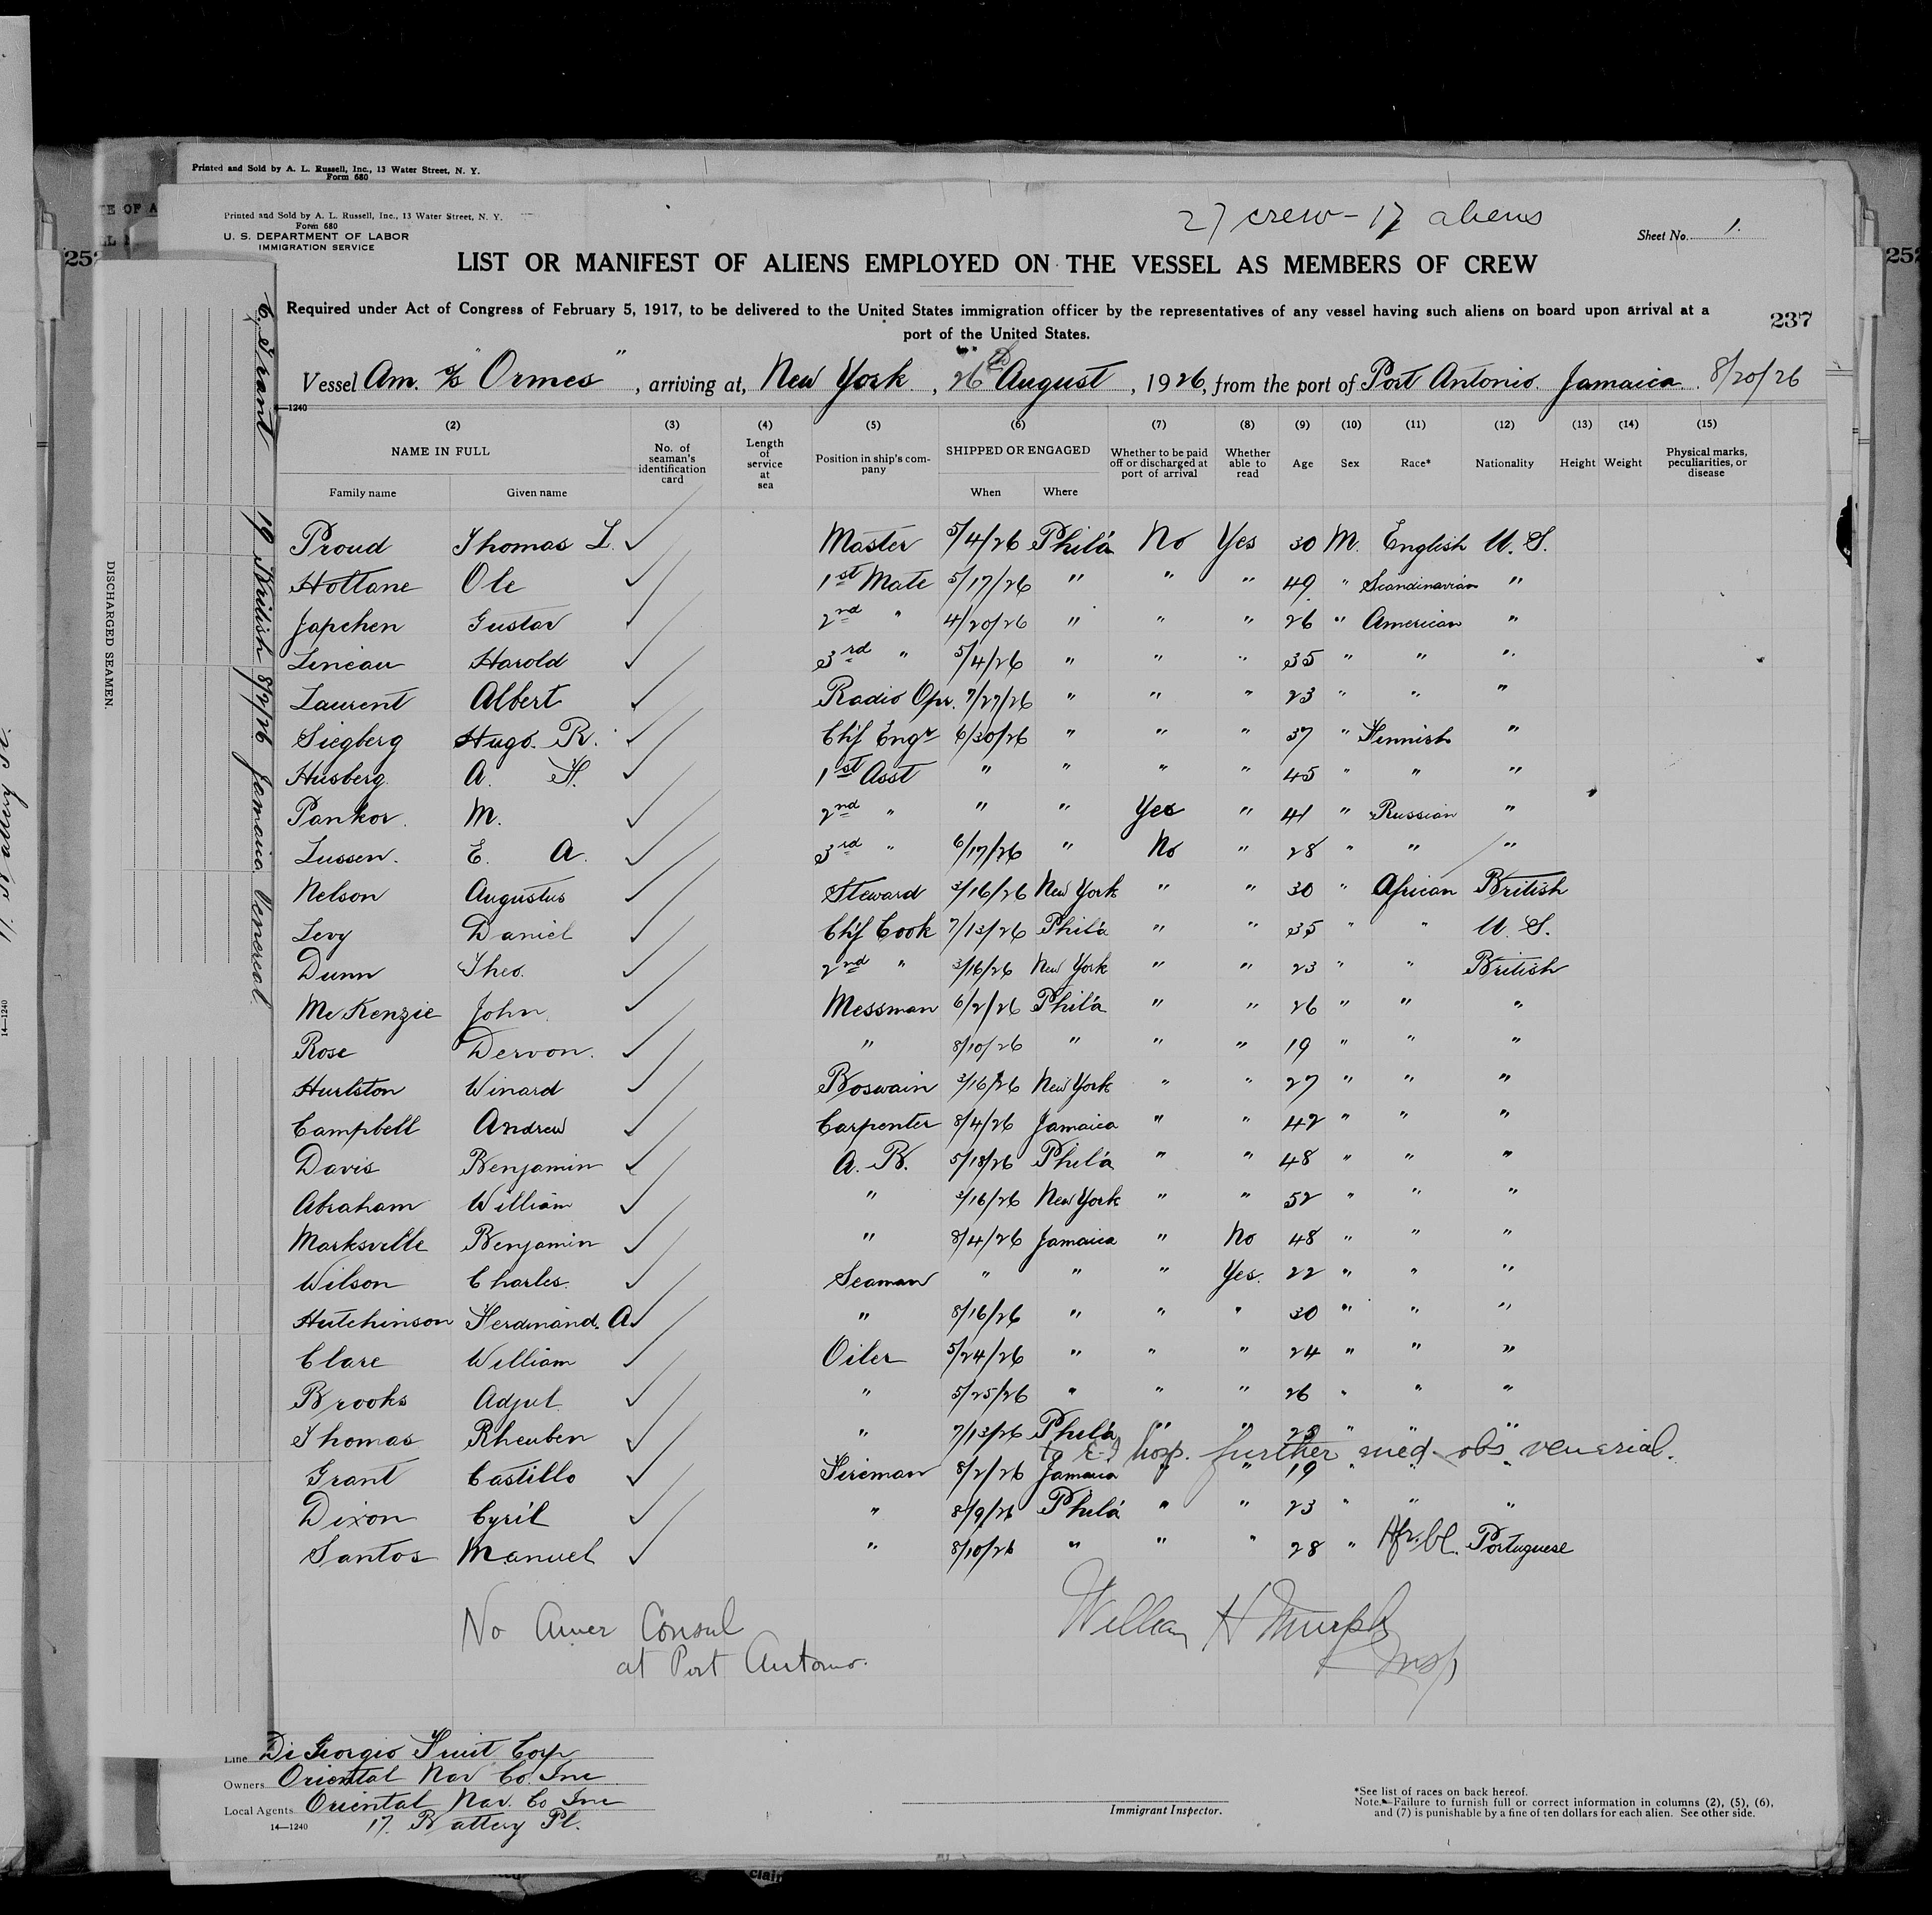 Printed and Sold by A. L. Russell, Inc., 13 Water Street, N. Y.
Form 680
Printed and Sold by A. L. Russell, Inc., 13 Water Street, N. Y.
Form 680
U. S. DEPARTMENT OF LABOR
IMMIGRATION SERVICE
27 crew - 17 aliens
Sheet No. 1.
LIST OR MANIFEST OF ALIENS EMPLOYED ON THE VESSEL AS MEMBERS OF CREW
Required under Act of Congress of February 5, 1917, to be delivered to the United States immigration officer by the representatives of any vessel having such aliens on board upon arrival at a
port of the United States.
237
252
252
Vessel Am. S/S "Ormes", arriving at, New York, 26th August, 1926, from the port of Port Antonio. Jamaica. 8/20/26
—1240
(2) (3) (4) (5) (6) (7) (8) (9) (10) (11) (12) (13) (14) (15)
NAME IN FULL No. of seaman's identification card Length of service at sea Position in ship's company SHIPPED OR ENGAGED Whether to be paid off or discharged at port of arrival Whether able to read Age Sex Race* Nationality Height Weight Physical marks, peculiarities, or disease
Family name Given name When Where
Proud Thomas L. ✓ Master 5/4/26 Phil'a No Yes 30 M. English U. S.
Hottane Ole ✓ 1st Mate 5/17/26 " " " 49 " Scandinavian "
Japchen Gustav ✓ 2nd " 4/20/26 " " " 26 " American "
Lineau Harold ✓ 3rd " 5/4/26 " " " 35 " " "
Laurent Albert ✓ Radio Opr. 7/27/26 " " " 23 " " "
Siegberg Hugo. R. ✓ Chf Engr 6/30/26 " " " 37 " Finnish "
Husberg A. F. ✓ 1st Asst " " " " 45 " " "
Pankov. M. ✓ 2nd " " " Yes " 41 " Russian "
Lussen. E. A. ✓ 3rd " 6/17/26 " No " 28 " " "
Nelson Augustus ✓ Steward 3/16/26 New York " " 30 " African British
Levy Daniel ✓ Chf Cook 7/13/26 Phil'a " " 35 " " U. S.
Dunn Theo. ✓ 2nd " 3/16/26 New York " " 23 " " British
McKenzie John ✓ Messman 6/2/26 Phil'a " " 26 " " "
Rose Dervon. ✓ " 8/10/26 " " " 19 " " "
Hurlston Winard ✓ Boswain 3/16/26 New York " " 27 " " "
Campbell Andrew ✓ Carpenter 8/4/26 Jamaica " " 42 " " "
Davis Benjamin ✓ A. B. 5/18/26 Phil'a " " 48 " " "
Abraham William ✓ " 3/16/26 New York " " 52 " " "
Marksville Benjamin ✓ " 8/4/26 Jamaica " No 48 " " "
Wilson Charles. ✓ Seaman " " " Yes. 22 " " "
Hutchinson Ferdinand. A ✓ " 8/16/26 " " " 30 " " "
Clare William ✓ Oiler 5/24/26 " " " 24 " " "
Brooks Adjul ✓ " 5/25/26 " " " 26 " " "
Thomas Rheuben ✓ " 7/13/26 Phil'a " " 25 " " "
to E-I hosp. further med obs venerial.
Grant Castillo ✓ Fireman 8/2/26 Jamaica " " 19 " " "
Dixon Cyril ✓ " 8/9/26 Phil'a " " 23 " " "
Santos Manuel ✓ " 8/10/26 " " " 28 " Afr. bl. Portuguese
No Amer Consul
at Port Antonio.
William H Murphy
Insp
Line Di Giorgio Fruit Corp
Owners Oriental Nav Co. Inc
Local Agents Oriental Nav. Co Inc
14—1240 17. Battery Pl.
Immigrant Inspector.
*See list of races on back hereof.
Note.—Failure to furnish full or correct information in columns (2), (5), (6),
and (7) is punishable by a fine of ten dollars for each alien. See other side.
DISCHARGED SEAMEN.
C. Grant 19 British 8/2/26 Jamaica Venereal
14—1240